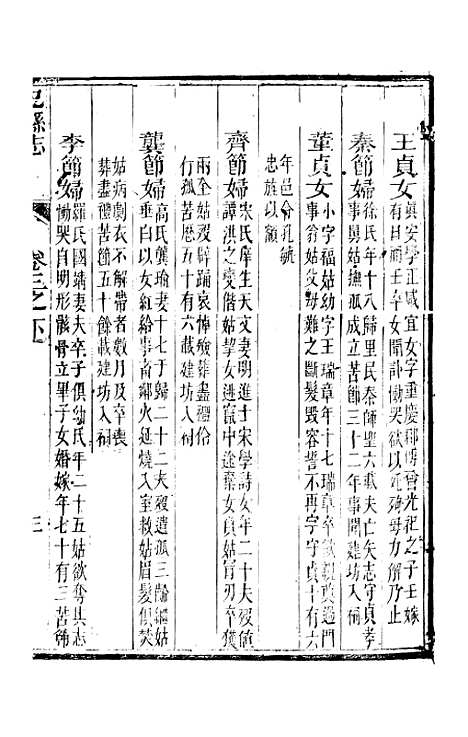 王貞女
真安學正咸宜女字重慶鄭博曾光祖之子王嫁
有日而王卒女聞訃慟哭欲以死殉母力解乃止
秦節婦
徐氏年十八歸里民秦師聖六載夫亡矢志守貞孝
事舅姑撫孤成立苦節三十二年事聞建坊入祠
董貞女
小字福姑幼字王瑞章年十七瑞章卒欲改適門
事翁姑父母難之斷髮毀容誓不再字守貞十有六
年邑令孔毓
忠旌以額
齊節婦
宋氏庠生天文妻明進士宋學詩女年二十夫歿值
譚洪之變偕姑挈女逃竄中途棄女負姑冒刃卒獲
兩全姑歿擗踊哀悼殮葬盡禮俗
行孤苦歷五十有六載建坊入祠
龔節婦
高氏龔瑜妻十七于歸二十二夫歿遺孤三齡孀姑
垂白以女紅給事甫鄰火延燒入室救姑眉髮俱焚
姑病劇衣不解帶者數月及卒喪
葬盡禮苦節五十餘載建坊入祠
李節婦
羅氏國靖妻夫故子俱幼氏年二十五姑欲奪其志
慟哭自明形骸骨立畢子女婚嫁年七十有三苦節
巴縣志
卷三之下
三